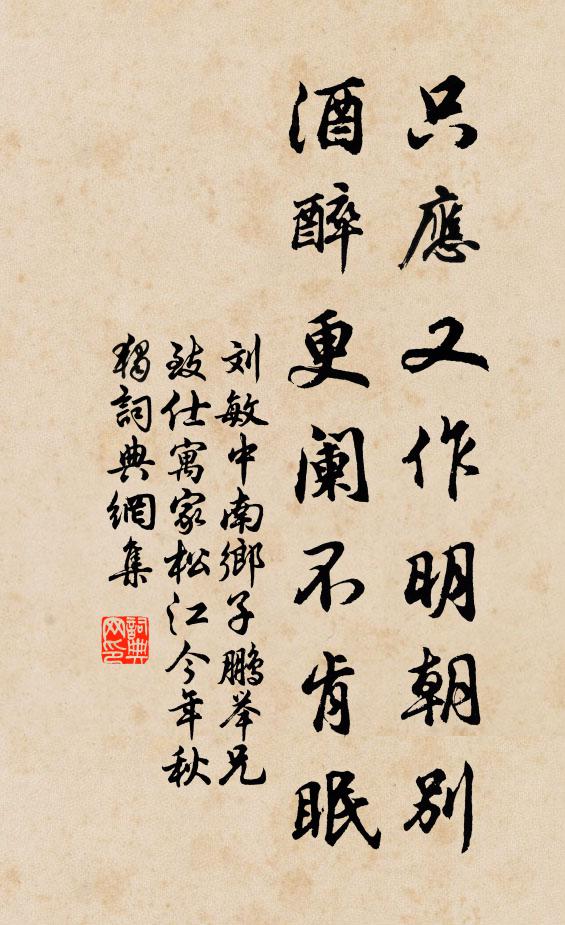 只應又作明朝别
酒醉更阑不肯眠
刘敏中南鄉子鵬举兄
致仕寓家松江今年秋
獨詞典網集
詞典
网印